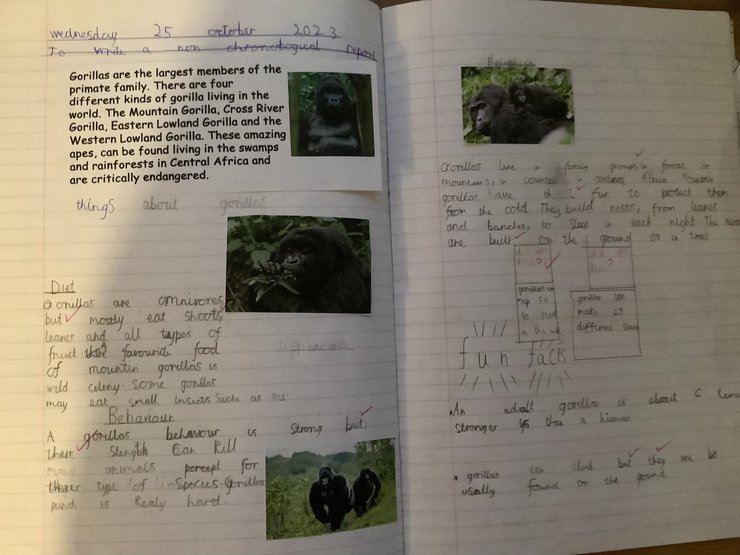 Wednesday 25 october 2023
To write a non chronological report
Gorillas are the largest members of the
primate family. There are four
different kinds of gorilla living in the
world. The Mountain Gorilla, Cross River
Gorilla, Eastern Lowland Gorilla and the
Western Lowland Gorilla. These amazing
apes, can be found living in the swamps
and rainforests in Central Africa and
are critically endangered.
things about gorillas
Diet
Gorillas are omnivores
but mostly eat shoots
leaves and all types of
fruit favourite food
of mountin gorillas is
wild celeny. Some gorillas
may eat small insects Such as
Behaviour
A gorillas behaviour is strong but,
There Stength Can kill
many animals for
type of Species. gorillas
punch is Realy hard.
Gorillas live in family groups, in forests or
mountains, in in central Africa Mountain
gorillas have fur to protect them
from the cold They build nests, from leaves
and banches, to sleep in each night. The nests
are built on the ground or in trees
gorillas
40
in the
gorillas
make 25
different
fun facts
An adult gorilla is about 6 times
stronger than a human
gorillas can climb but they are be
usually found on the ground